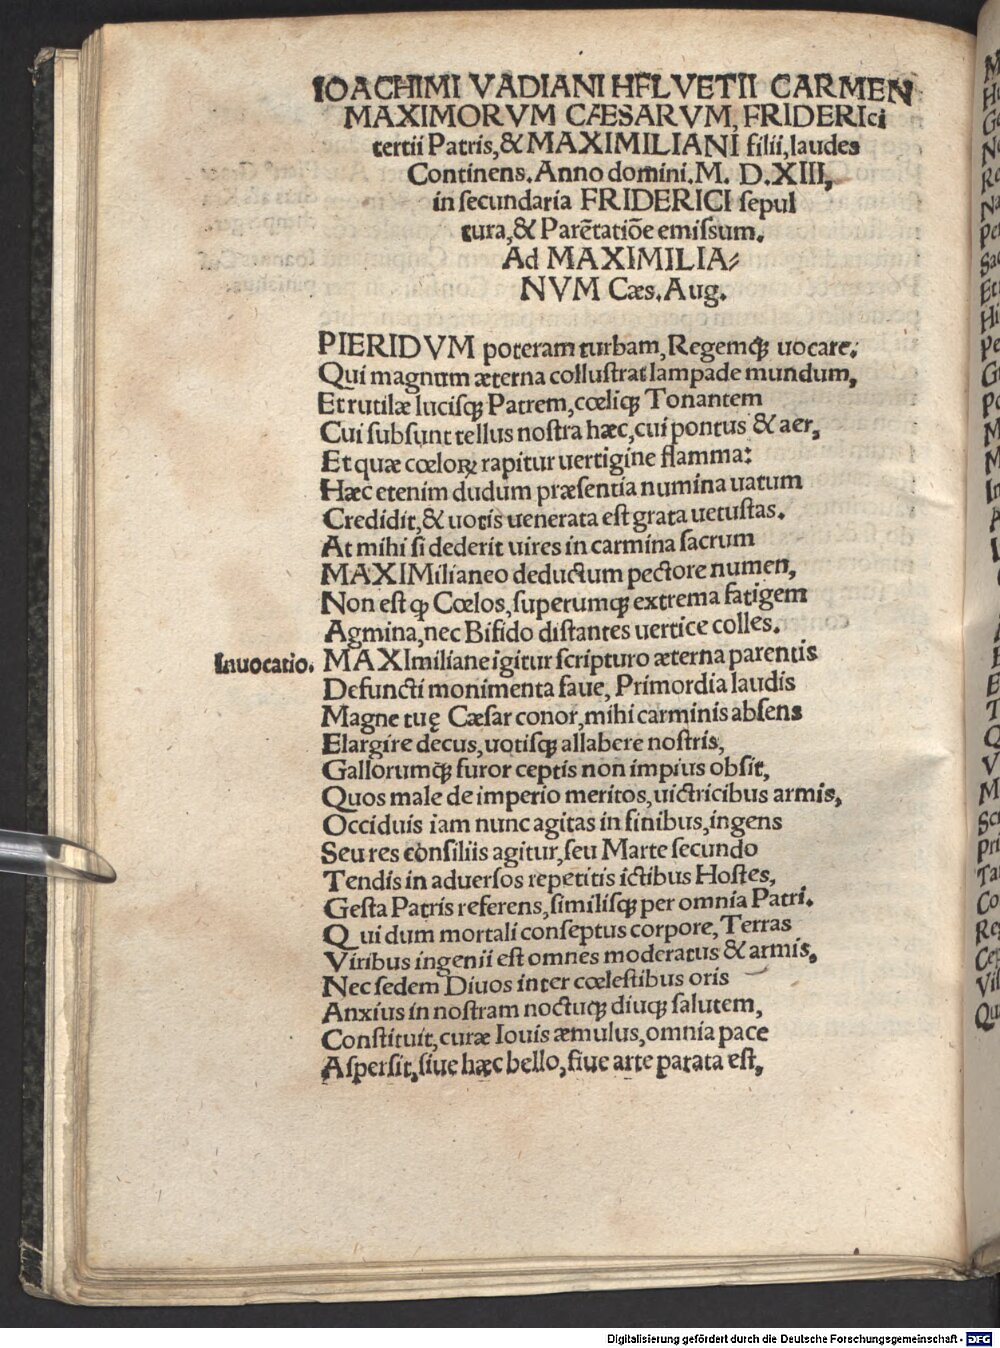 IOACHIMI VADIANI HELVETII CARMEN
MAXIMORVM CÆSARVM, FRIDERIci
tertii Patris, & MAXIMILIANI filii, laudes
Continens. Anno domini. M. D.XIII,
in secundaria FRIDERICI sepul
tura, & Parẽtatiõe emissum.
Ad MAXIMILIA⸗
NVM Cæs. Aug.
PIERIDVM poteram turbam, Regemqꝫ uocare,
Qui magnum æterna collustrat lampade mundum,
Et rutilæ lucisqꝫ Patrem, cœliqꝫ Tonantem
Cui subsunt tellus nostra hæc, cui pontus & aer,
Et quæ cœloꝝ rapitur uertigine flamma:
Hæc etenim dudum præsentia numina uatum
Credidit, & uotis uenerata est grata uetustas.
At mihi si dederit uires in carmina sacrum
MAXIMilianeo deductum pectore numen,
Non est ꝙ Cœlos, superumqꝫ extrema fatigem
Agmina, nec Bifido distantes uertice colles.
Inuocatio. MAXImiliane igitur scripturo æterna parentis
Defuncti monimenta faue, Primordia laudis
Magne tuę Cæsar conor, mihi carminis absens
Elargire decus, uotisqꝫ allabere nostris,
Gallorumqꝫ furor ceptis non impius obsit,
Quos male de imperio meritos, uictricibus armis,
Occiduis iam nunc agitas in finibus, ingens
Seu res consiliis agitur, seu Marte secundo
Tendis in aduersos repetitis ictibus Hostes,
Gesta Patris referens, similisqꝫ per omnia Patri.
Qui dum mortali conseptus corpore, Terras
Viribus ingenii est omnes moderatus & armis,
Nec sedem Diuos inter cœlestibus oris
Anxius in nostram noctuqꝫ diuqꝫ salutem,
Constituit, curæ Iouis æmulus, omnia pace
Aspersit, siue hæc bello, siue arte parata est,
Digitalisierung gefördert durch die Deutsche Forschungsgemeinschaft - DFG